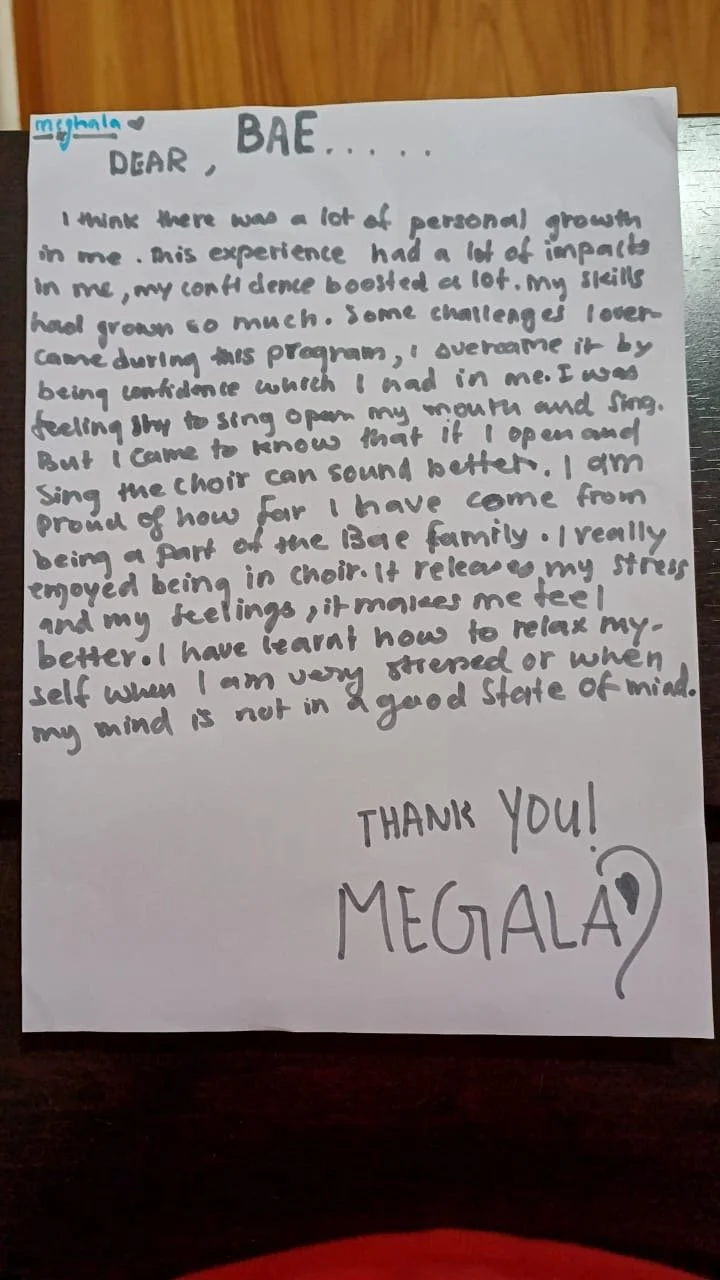 meghala
DEAR, BAE.....
I think there was a lot of personal growth
in me. This experience had a lot of impacts
in me, my confidence boosted a lot. My skills
had grown so much. Some challenges I over-
came during this program, I overcame it by
being confidence which I had in me. I was
feeling shy to sing open my mouth and sing.
But I came to know that if I open and
sing the choir can sound better. I am
proud of how far I have come from
being a part of the Bae family. I really
enjoyed being in choir. It releases my stress
and my feelings, it makes me feel
better. I have learnt how to relax my-
self when I am very stressed or when
my mind is not in a good state of mind.
THANK YOU!
MEGALA